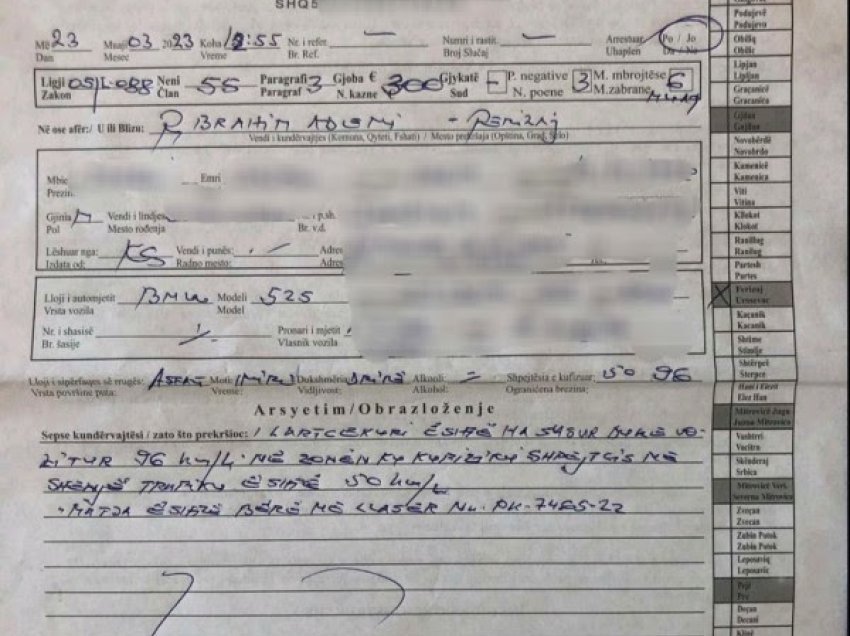 SHQ5
Më 23 Muaj 03 2023 Koha 12:55 Nr. i refer. — Numri i rastit — Arrestuar Po / Jo
Dan Mesec Vreme Br. Ref. Broj Slučaj Uhapšen Da / Ne
Ligji 05/L-088 Neni 55 Paragrafi 3 Gjoba € 300 Gjykatë — P. negative 3 M. mbrojtëse 6
Zakon Član Paragraf N. kazne Sud N. poene M.zabrane
Në ose afër:/ U ili Blizu: Rr BRAHIM ADEMI - FERIZAJ
Vendi i kundërvajtjes (Komuna, Qyteti, Fshati) / Mesto prekršaja (Opština, Grad, Selo)
Mbie Emri
Prezim
Gjinia M Vendi i lindjes
Pol Mesto rođenja Br. v.d.
Lëshuar nga: KS Vendi i punës: Adres
Izdata od: Radno mesto: Adres
Lloji i automjetit BMW Modeli 525
Vrsta vozila Model
Nr. i shasisë Pronari i mjetit
Br. šasije Vlasnik vozila
Lloji i sipërfaqes së rrugës: ASFALT Moti: (MIRË) Dukshmëria MIRË Alkooli — Shpejtësia e kufizuar: 50 96
Vrsta površine puta: Vreme: Vidljivost: Alkohol: Ograničena brzina:
Arsyetim/Obrazloženje
Sepse kundërvajtësi / zato što prekršioc: I LARTCEKURI ËSHTË HASUR DUKE VO-
ZITUR 96 km/h NË ZONËN KU KUFIZIMI SHPEJTSIS ME
SHENJË TRAFIKU ËSHTË 50 km/h
· MATJA ËSHTË BËRË ME LLASER Nr. PK-7485-22
Podujevë
Podujevo
Obiliq
Obilić
Lipjan
Lipljan
Graçanicë
Gracanica
Gjilan
Gnjilan
Novobërdë
Novobrdo
Kamenicë
Kamenica
Viti
Vitina
Kllokot
Klokot
Ranillug
Ranilug
Partesh
Partes
X Ferizaj
Urosevac
Kaçanik
Kacanik
Shtime
Stimlje
Shtërpcë
Sterpce
Hani i Elezit
Elez Han
Mitrovicë Jugu
Juzna Mitrovica
Vushtrri
Vucitrn
Skënderaj
Srbica
Mitrovicë Veri
Severna Mitrovica
Zveçan
Zvecan
Zubin Potok
Zubin Potok
Leposaviq
Leposavic
Pejë
Pec
Deçan
Decani
Klinë